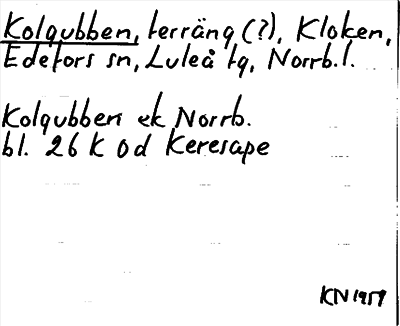 Kolgubben, terräng (?), Kloken,
Edefors sn, Luleå tg, Norrb. l.
Kolgubben ek Norrb.
bl. 26 K od Keresape
KN 1959